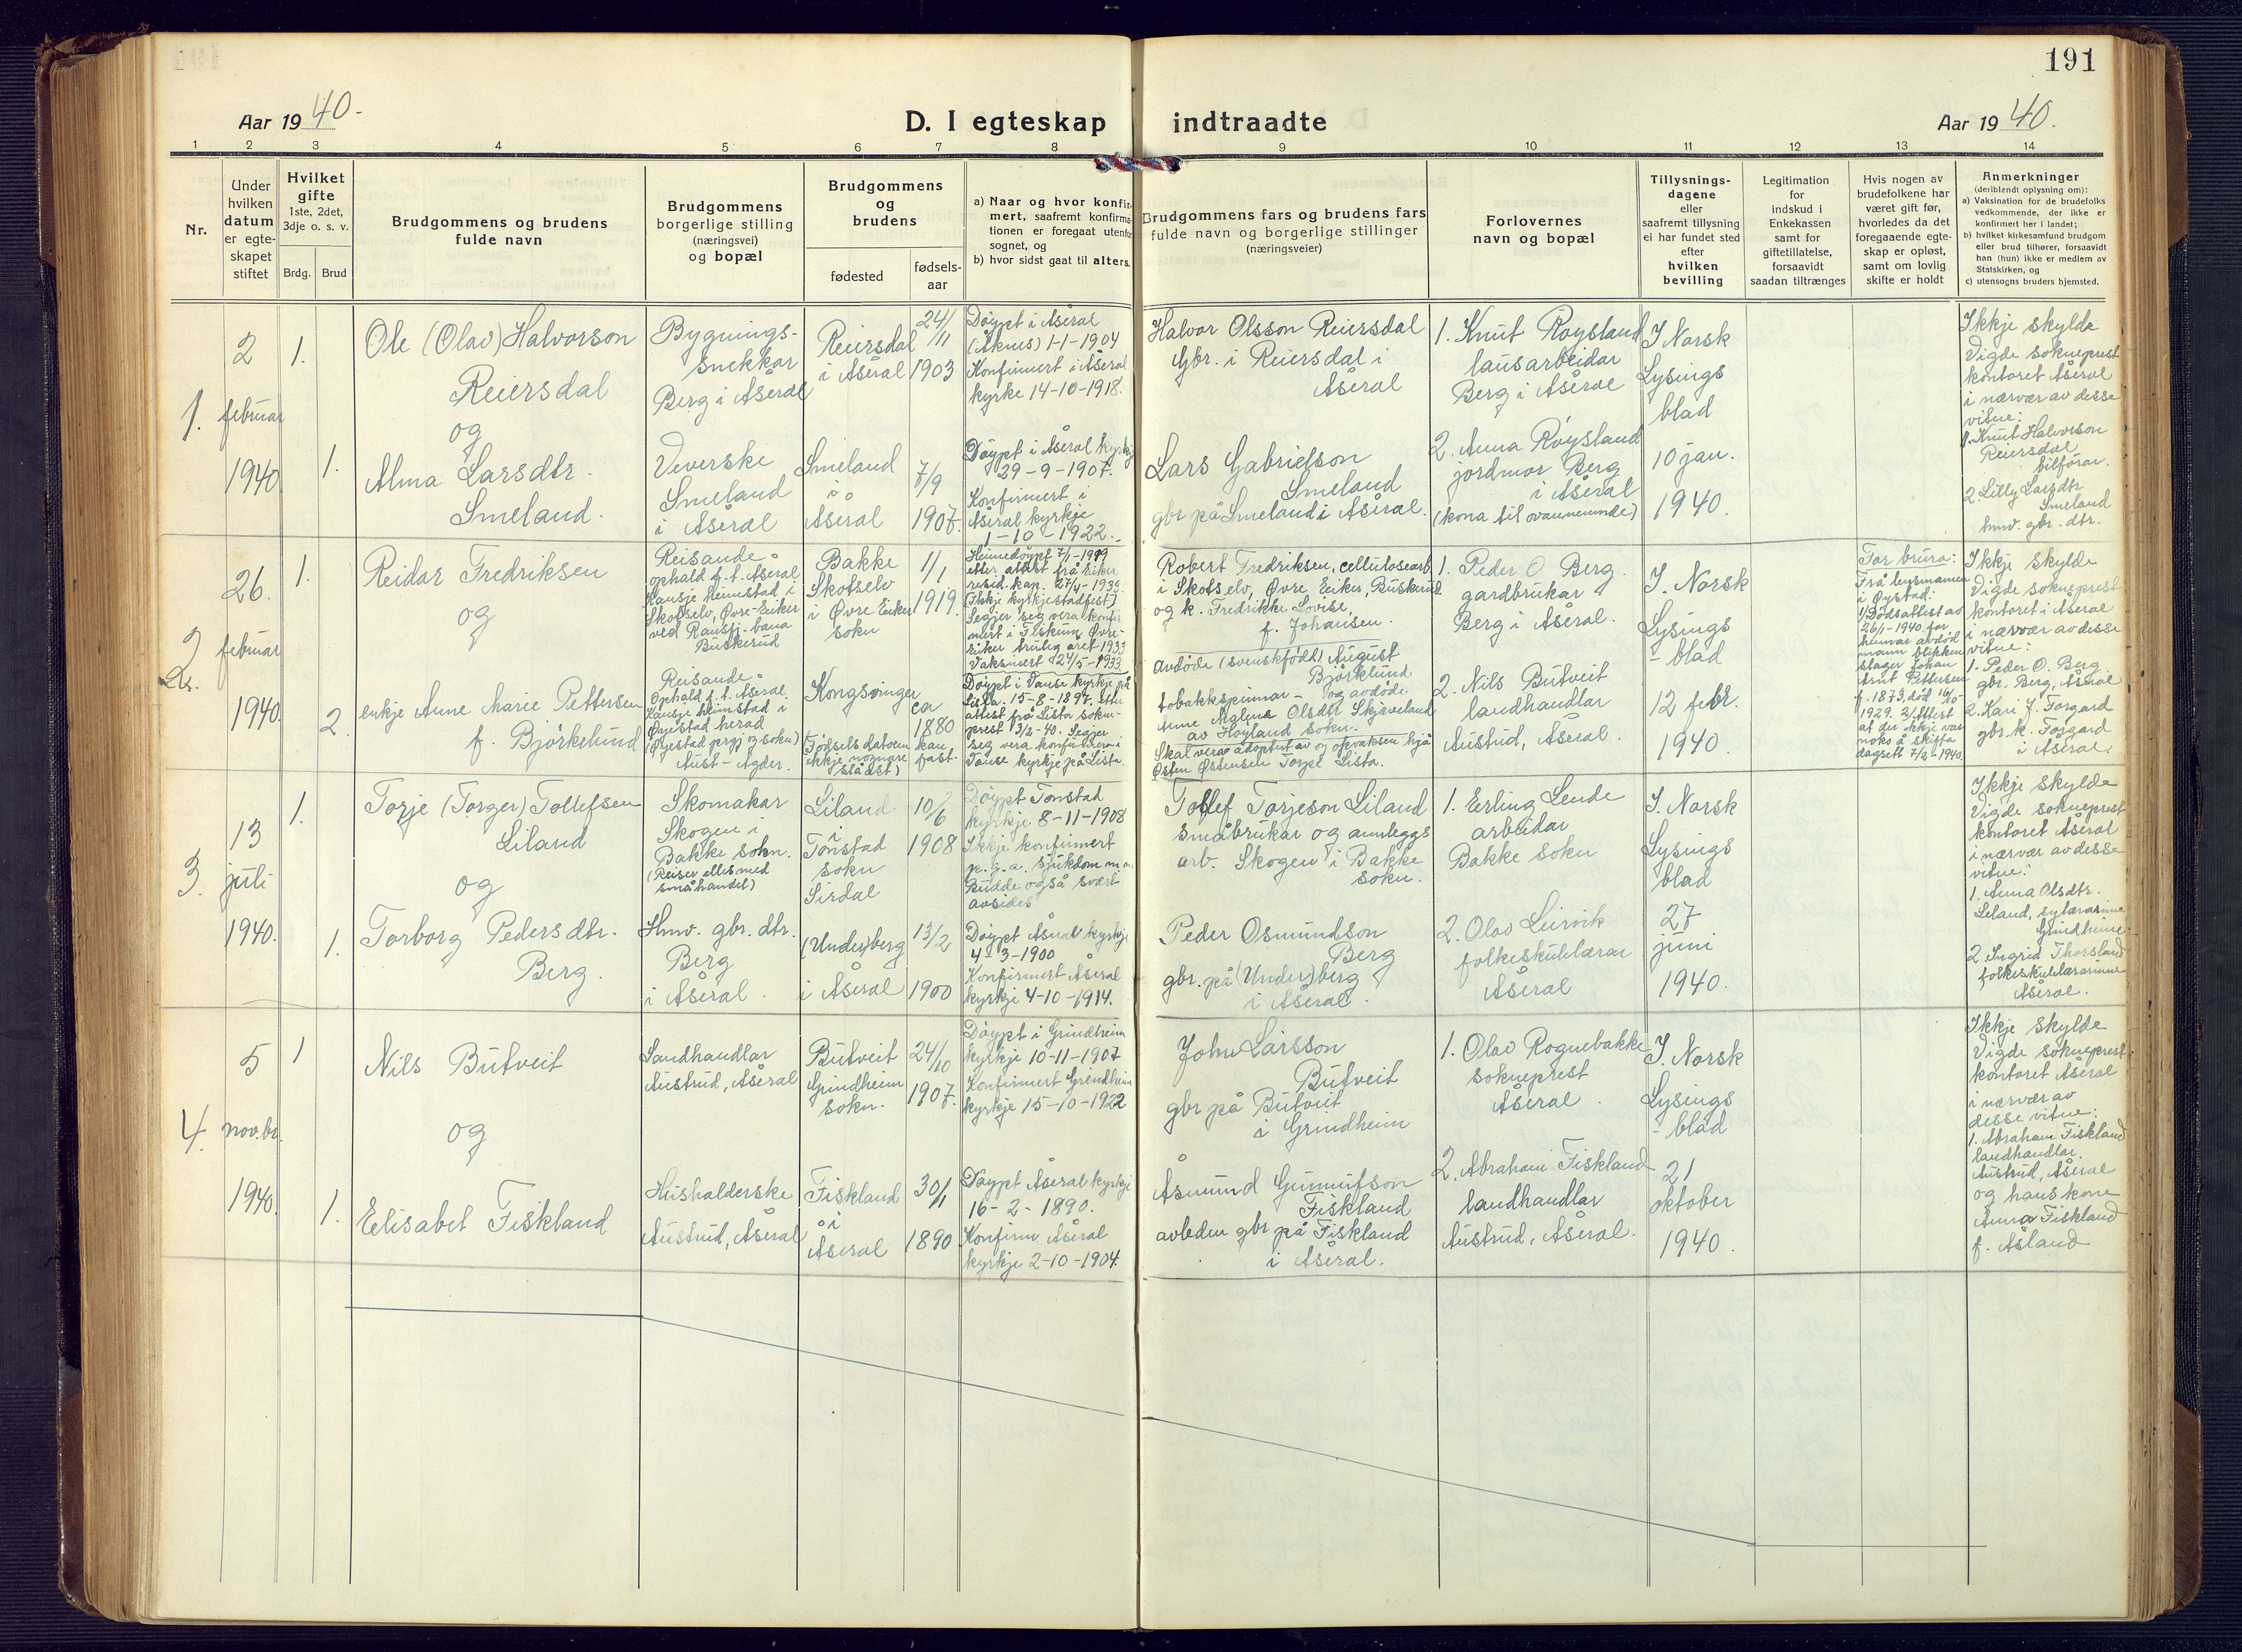 191
Aar 1940.
D. I egteskap indtraadte
Aar 1940.
1 2 3 4 5 6 7 8 9 10 11 12 13 14
Nr.
Under
hvilken
datum
er egte-
skapet
stiftet
Hvilket
gifte
1ste, 2det,
3dje o. s. v.
Brdg. Brud
Brudgommens og brudens
fulde navn
Brudgommens
borgerlige stilling
(næringsvei)
og bopæl
Brudgommens
og
brudens
fødested
fødsels-
aar
a) Naar og hvor konfir-
mert, saafremt konfirma-
tionen er foregaat utenfor
sognet, og
b) hvor sidst gaat til alters.
Brudgommens fars og brudens fars
fulde navn og borgerlige stillinger
(næringsveier)
Forlovernes
navn og bopæl
Tillysnings-
dagene
eller
saafremt tillysning
ei har fundet sted
efter
hvilken
bevilling
Legitimation
for
indskud i
Enkekassen
samt for
giftetillatelse,
forsaavidt
saadan tiltrænges
Hvis nogen av
brudefolkene har
været gift før,
hvorledes da det
foregaaende egte-
skap er opløst,
samt om lovlig
skifte er holdt
Anmerkninger
(deriblandt oplysning om):
a) Vaksination for de brudefolks
vedkommende, der ikke er
konfirmert her i landet;
b) hvilket kirkesamfund brudgom
eller brud tilhører, forsaavidt
han (hun) ikke er medlem av
Statskirken, og
c) utensogns bruders hjemsted.
1.
2
februar
1940.
1.
1.
Ole (Olav) Halvorson
Reiersdal
og
Alma Larsdtr.
Smeland.
Bygnings-
snekkar
Berg i Åseral
Veverske
Smeland
i Åseral
Reiersdal
i Åseral
Smeland
i
Åseral
24/11
1903
7/9
1907.
Døypt i Åseral
(Åknes) 1-1-1904
Konfirmert i Åseral
kyrkje 14-10-1918.
Døypt i Åseral kyrkj
29-9-1907.
Konfirmert i
Åseral kyrkje
1-10-1922.
Halvor Olsson Reiersdal
Gbr. i Reiersdal i
Åseral
Lars Gabrielson
Smeland
gbr på Smeland i Åseral.
1. Knut Røysland
lausarbeidar
Berg i Åseral
2. Anna Røysland
jordmor Berg
i Åseral
(kona til ovannemnde)
I Norsk
Lysings
blad
10 jan.
1940.
Ikkje skylde
Vigde sokneprest
kontoret Åseral
i nærvær av desse
vitne:
1. Knut Halvorson
Reiersdal
bilførar.
2. Lilly Larsdtr
Smeland
hmv. gbr. dtr.
2
2.
26.
februar
1940.
1.
2.
Reidar Fredriksen
og
enkje Anne Marie Pettersen
f. Bjørkelund
Reisande
ophald f.t. Åseral
Kansje heimstad i
Skotselv, Øvre-Eiker
ved Randsfj-bana
Buskerud
Reisande
Ophald f.t. Åseral.
Kansje heimstad i
Øyestad herad
(Øyestad prgj og sokn)
Aust-Agder.
Bakke
Skotselv
i Øvre Eiker
sokn
Kongsvinger
Fødselsdatoen kan
ikkje nøgnare fast-
slåast)
1/1
1919.
ca
1880
Heimedøypt 7/1-1919
etter attest frå Eiker
resid. kap. 27/4-1933
(Ikkje kyrkjestadfest)
Segjer seg vera konfir
mert i Fiskum Øvre-
Eiker truleg året 1933
Vaksinert 24/5-1933
Døypt i Vanse kyrkje på
Lista 15-8-1897. Etter
attest frå Lista sokn-
prest 13/2-40. Segjer
seg vera konfirmert i
Vanse kyrkje på Lista.
Robert Fredriksen, cellulosearb.
i Skotselv, Øvre Eiker, Buskerud
og k. Fredrikke Lovise,
f. Johansen.
Avdøde (svenskfødd) August
Bjørklund
tobakkspinnar- og avdøde
Anne Malena Olsdtr Skjæveland
av Høyland sokn.
Skal vera adoptert av og opvaksen hjå
Østen Østensen Torpe Lista.
1. Peder O Berg.
gardbrukar
Berg i Åseral.
2. Nils Butveit
landhandlar
Austrud, Åseral.
I. Norsk
Lysings
- blad
12 febr.
1940.
For brura:
Frå lensmannen
i Øystad:
1) Dødsattest av
26/1-1940 for
hennar avdød
mann blikken
slager Johan
Arnt Pettersen
f. 1873, død 16/10-
1929. 2/Attest
at der ikkje var
noko å skifta
dagsett 7/2-1940.
Ikkje skylde
Vigde sokneprest
kontoret i Åseral
i nærvær av desse
vitne:
1. Peder O. Berg
gbr. Berg, Åseral
2. Kari J. Forgard
gbr. k. Fosgard
i Åseral.
3.
13
juli
1940.
1.
1.
Torje (Torger) Tollefsen
Liland
og
Torborg Pedersdtr.
Berg.
Skomakar
Skogen i
Bakke sokn.
(Reiser elles med
småhandel)
Hmv. gbr. dtr.
Berg
i Åseral.
Liland
i
Tonstad
sokn
Sirdal
(Under)berg
i Åseral
10/6
1908
13/2
1900
Døypt Tonstad
kyrkje 8-11-1908
Ikkje konfirmert
p.g.a. sjukdom m.m
Budde også svært
avsides
Døypt Åseral kyrkje
4-3-1900
Konfirmert Åseral
kyrkje 4-10-1914.
Tollef Torjeson Liland
småbrukar og annleggs
arb. Skogen i Bakke
sokn.
Peder Osmundson
Berg
gbr. på (Under)berg
i Åseral.
1. Erling Lende
arbeidar
Bakke sokn
2. Olav Leirvik
folkeskulelærar
Åseral
I. Norsk
Lysings
blad
27
juni
1940.
Ikkje skylde
Vigde sokneprest
kontoret Åseral
i nærvær av desse
vitne:
1. Anna Olsdtr.
Leland, sylærarinne
Grindheim
2 Ingrid Thorsland
folkeskulelærarinne
Åseral.
4.
5
nov.br.
1940.
1
1.
Nils Butveit
og
Elisabet Fiskland
Landhandlar
Austrud, Åseral
Husholderske
Austrud, Åseral
Butveit
Grindheim
sokn.
Fiskland
i
Åseral
24/10
1907.
30/1
1890
Døypt i Grindheim
kyrkje 10-11-1907
Konfirmert Grindheim
kyrkje 15-10-1922
Døypt Åseral kyrkje
16-2-1890.
Konfirm Åseral
kyrkje 2-10-1904.
John Larsson
Butveit
gbr på Butveit
i Grindheim
Åsmund Gunnufson
Fiskland
avleden gbr på Fiskland
i Åseral.
1. Olav Rognebakke
sokneprest
Åseral.
2. Abraham Fiskland
landhandlar
Austrud, Åseral.
I. Norsk
Lysings
- blad
21
oktober
1940.
Ikkje skylde
Vigde sokneprest
kontoret Åseral
i nærvær av
desse vitne:
1. Abraham Fiskland
landhandlar.
Austrud, Åseral
og hans kone
Anna Fiskland
f. Åsland